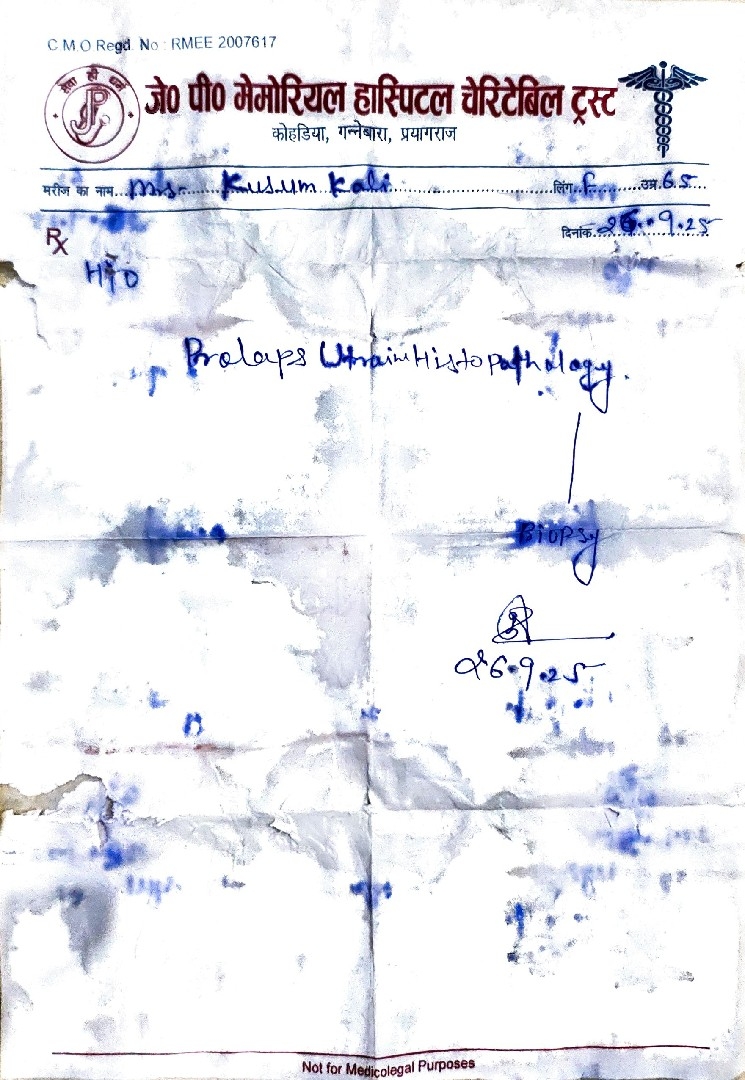 C M O Regd. No : RMEE 2007617
सेवा ही धर्म
JP
जे0 पी0 मेमोरियल हास्पिटल चेरिटेबिल ट्रस्ट
कोहडिया, गन्नेबारा, प्रयागराज
मरीज का नाम...Mrs. Kusum Kali...लिंग.F...उम्र.65...
दिनांक...26.9.25
Rx
H/O
Prolaps Utrain Histopathology.
Biopsy
26.9.25
Not for Medicolegal Purposes